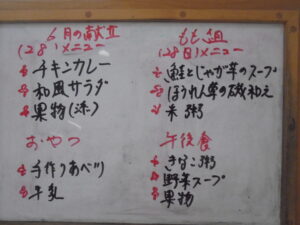 6月の献立
(28)メニュー
チキンカレー
和風サラダ
果物
おやつ
手作りあべ川
牛乳
もも組
(28日)メニュー
鮭とじゃが芋のスープ
ほうれん草の磯和え
米粥
午後食
きなこ粥
野菜スープ
果物